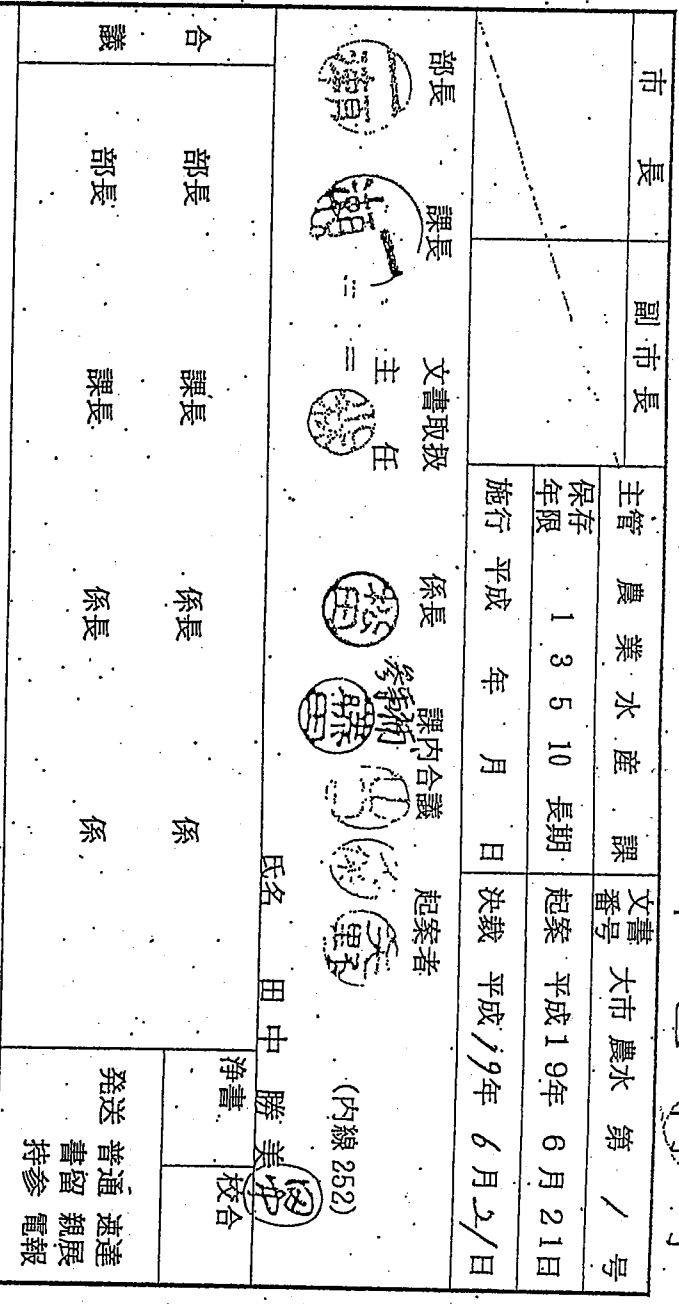 市長 副市長
主管 農業水産課
文書番号 大市農水 第 / 号
保存年限 1 3 5 10 長期
起案 平成19年 6月 21日
施行 平成 年 月 日
決裁 平成19年 6月21日
部長 課長 文書取扱主任 係長 課内合議 起案者
(内線 252)
氏名 田中 勝美
合議
部長 課長 係長 係
部長 課長 係長 係
浄書 校合
発送 普通 速達
書留 親展
持参 電報